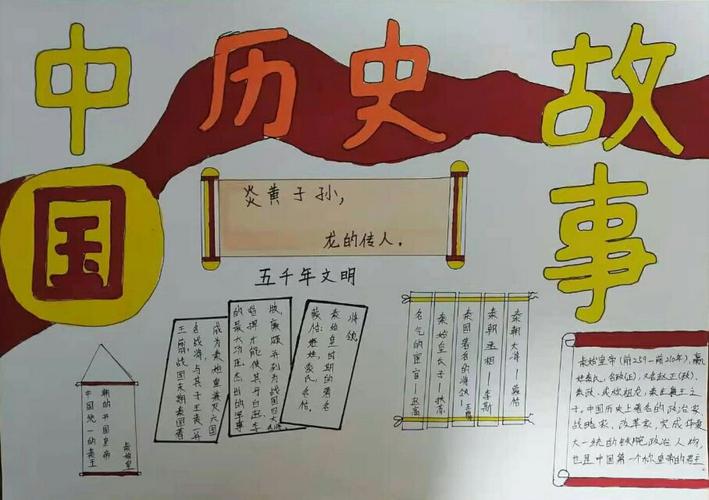 中国历史故事
炎黄子孙，
龙的传人。
五千年文明
秦始皇
朝的开国皇帝
中国统一的秦王
将领
秦始皇时期的著名
蒙恬：姬姓，蒙氏，名恬
成为秦始皇兼灭六国
王翦，战国末期秦国著
秦朝大将－蒙恬
秦朝丞相－李斯
秦国著名的将领－王翦
秦始皇长子－扶苏
名气的宦官－赵高
秦始皇帝(前259—前210年)，嬴
姓秦氏，名政(正)，又名赵正(政)、
秦政，或称祖龙，秦庄襄王之
子。中国历史上著名的政治家
战略家、改革家，完成华夏
大一统的铁腕政治人物，
也是中国第一个称皇帝的君主